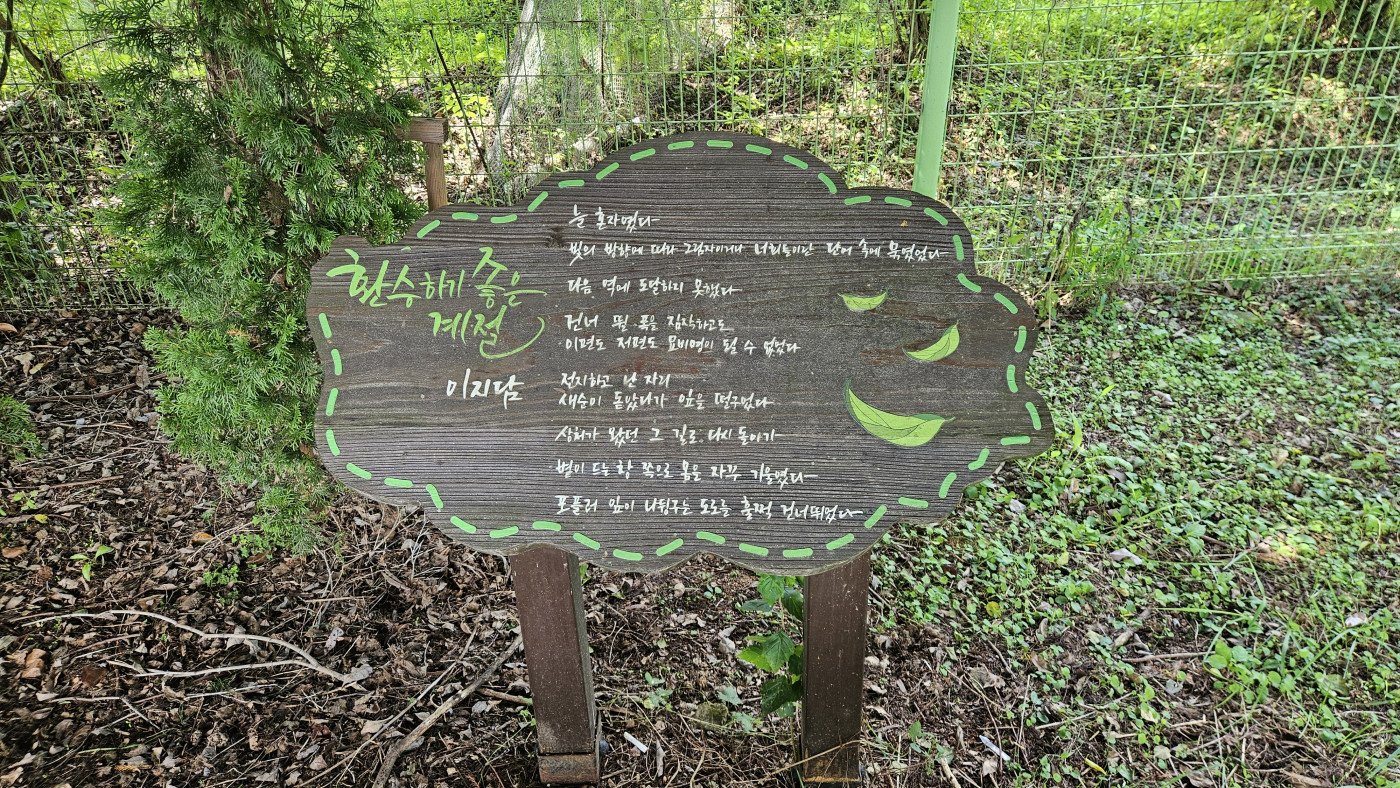 환승하기 좋은
계절
이지담
늘 혼자였다
빛의 방향에 따라 그림자이거나 너희들이란 단어 속에 묶였었다
다음 역에 도달하지 못했다
건너 뛸 폭을 짐작하고도
이편도 저편도 묘비명이 될 수 없었다
전지하고 난 자리
새순이 돋았다가 잎을 떨구었다
상처가 왔던 그 길로 다시 돌아가
볕이 드는 창 쪽으로 몸을 자꾸 기울였다
포플러 잎이 나뒹구는 도로를 훌쩍 건너뛰었다